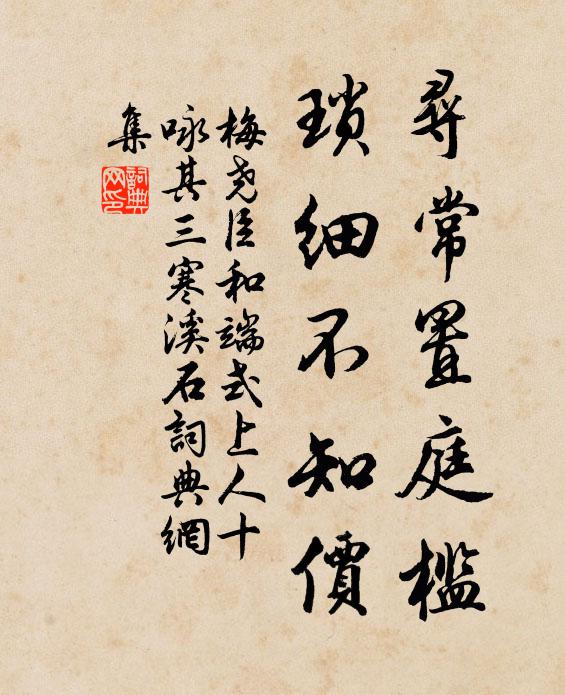 尋常置庭檻
瑣細不知價
梅堯臣和端式上人十
咏其三寒溪石詞典網
集
詞典
网印